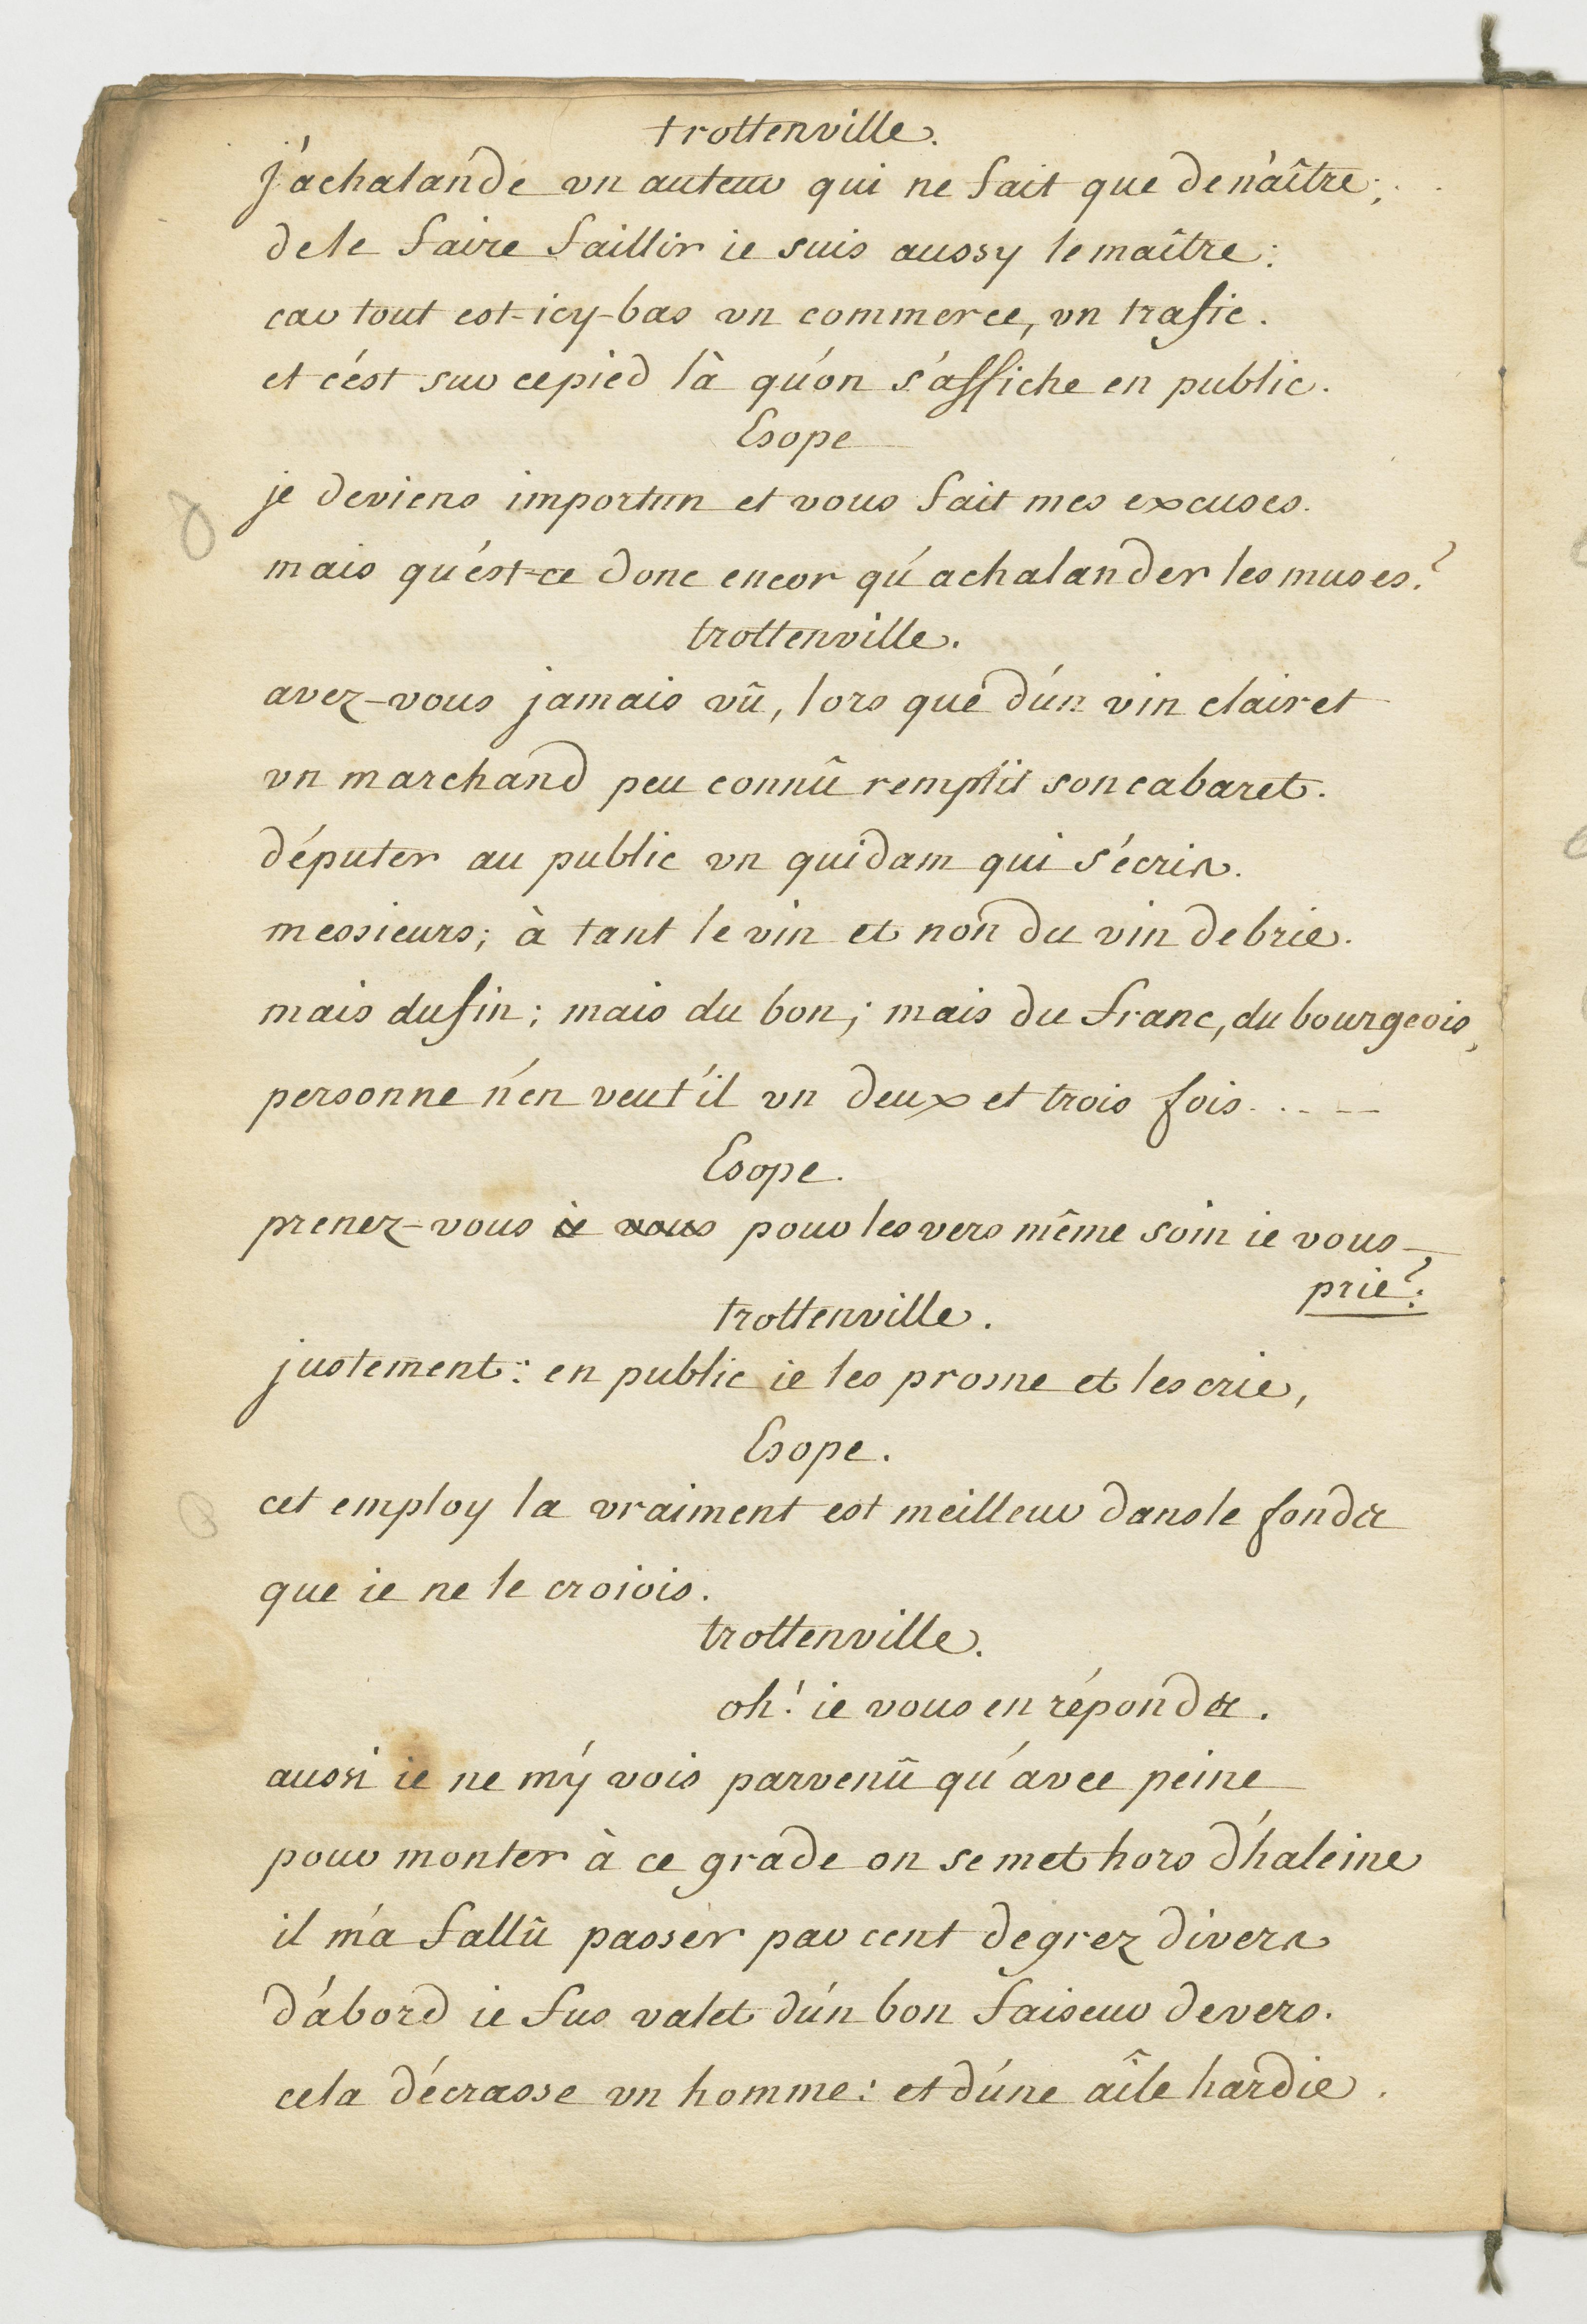 trottenville.
j'achalande vn auteur qui ne fait que de naître;
de le faire faillir ie suis aussy le maître:
car tout est-icy-bas vn commerce, vn trafic.
et c'est sur ce pied là qu'on s'affiche en public.
Esope
je deviens importun et vous fait mes excuses.
mais qu'est-ce donc encor qu'achalander les muses?
trottenville.
avez-vous jamais vû, lors que d'ún vin clairet
vn marchand peu connû remplit son cabaret.
députer au public vn quidam qui s'écrie.
messieurs; à tant le vin et non du vin de brie.
mais du fin; mais du bon; mais du franc, du bourgeois,
personne n'en veut'il vn deux et trois fois.....
Esope.
prenez-vous ie vous pour les vers même soin ie vous
prie?
trottenville.
justement: en public ie les prosne et les crie,
Esope.
cet employ la vraiment est meilleur dans le fonds
que ie ne le croiois.
trottenville.
oh! ie vous en réponds.
aussi ie ne m'y vois parvenû qu'avec peine
pour monter à ce grade on se met hors d'haleine
il m'a fallû passer par cent degrez divers
d'abord ie fus valet d'ún bon faiseur de vers.
cela décrasse vn homme: et d'úne aîle hardie.